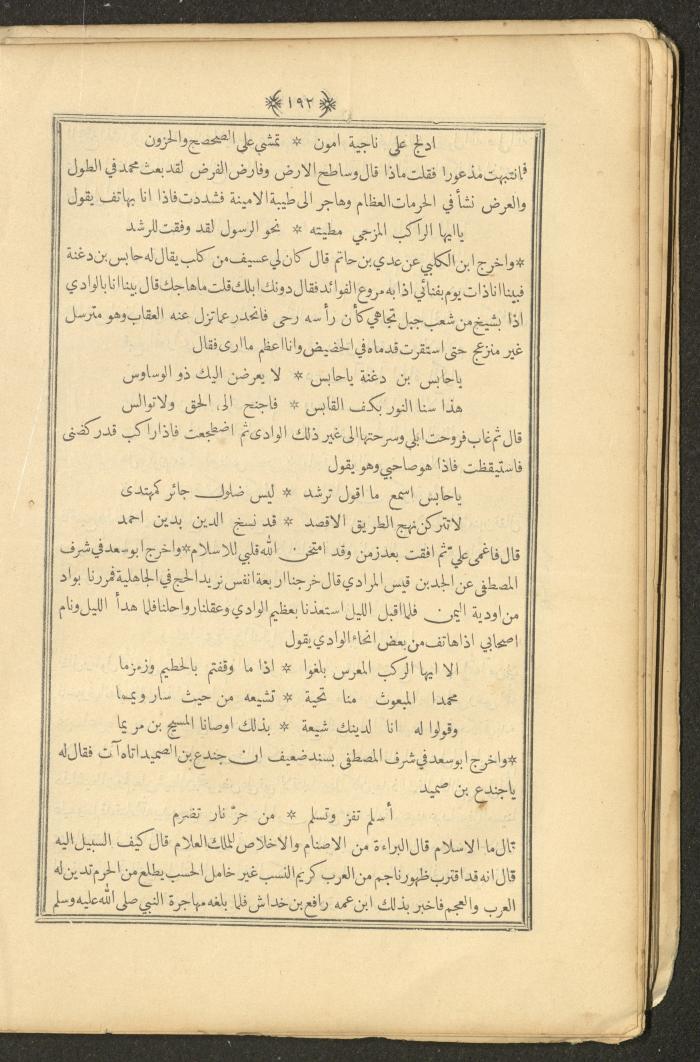 ١٩٢
ادلج على ناجية امون * تمشي على الصحصح والحزون
فانتبهت مذعورا فقلت ماذا قال وساطح الارض وفارض الفرض لقد بعث محمد في الطول
والعرض نشأ في الحرمات العظام وهاجر الى طيبة الامينة فشددت فاذا انا بهاتف يقول
ياايها الراكب المزجي مطيته * نحو الرسول لقد وفقت للرشد
*واخرج ابن الكلبي عن عدي بن حاتم قال كان لي عسيف من كلب يقال له حابس بن دغنة
فبينا انا ذات يوم بفنائي اذا به مروع الفوائد فقال دونك ابلك قلت ما هاجك قال بينا انا بالوادي
اذا بشيخ من شعب جبل تجاهي كأن رأسه رحى فانحدر عما تزل عنه العقاب وهو مترسل
غير منزعج حتى استقرت قدماه في الحضيض وانا اعظم ما ارى فقال
ياحابس بن دغنة ياحابس * لا يعرضن اليك ذو الوساوس
هذا سنا النور بكف القابس * فاجنح الى الحق ولا توالس
قال ثم غاب فروحت ابلي وسرحتها الى غير ذلك الوادى ثم اضطجعت فاذا راكب قدر كضنى
فاستيقظت فاذا هو صاحبي وهو يقول
ياحابس اسمع ما اقول ترشد * ليس ضلول جائر كمهتدى
لا تتركن نهج الطريق الاقصد * قد نسخ الدين بدين احمد
قال فاغمى علي ثم افقت بعد زمن وقد امتحن الله قلبي للاسلام * واخرج ابو سعد في شرف
المصطفى عن الجد بن قيس المرادي قال خرجنا اربعة انفس نريد الحج في الجاهلية فمررنا بواد
من اودية اليمن فلما اقبل الليل استعذنا بعظيم الوادي وعقلنا رواحلنا فلما هدأ الليل ونام
اصحابي اذا هاتف من بعض انحاء الوادي يقول
الا ايها الركب المعرس بلغوا * اذا ما وقفتم بالحطيم وزمزما
محمدا المبعوث منا تحية * تشيعه من حيث سار ويمما
وقولوا له انا لدينك شيعة * بذلك اوصانا المسيح بن مريما
*واخرج ابو سعد في شرف المصطفى بسند ضعيف ان جندع بن الصميد اتاه آت فقال له
ياجندع بن صميد
أسلم تفز وتسلم * من حرّ نار تضرم
قال ما الاسلام قال البراءة من الاصنام والاخلاص للملك العلام قال كيف السبيل اليه
قال انه قد اقترب ظهور ناجم من العرب كريم النسب غير خامل الحسب يطلع من الحرم تدين له
العرب والعجم فاخبر بذلك ابن عمه رافع بن خداش فلما بلغه مهاجرة النبي صلى الله عليه وسلم